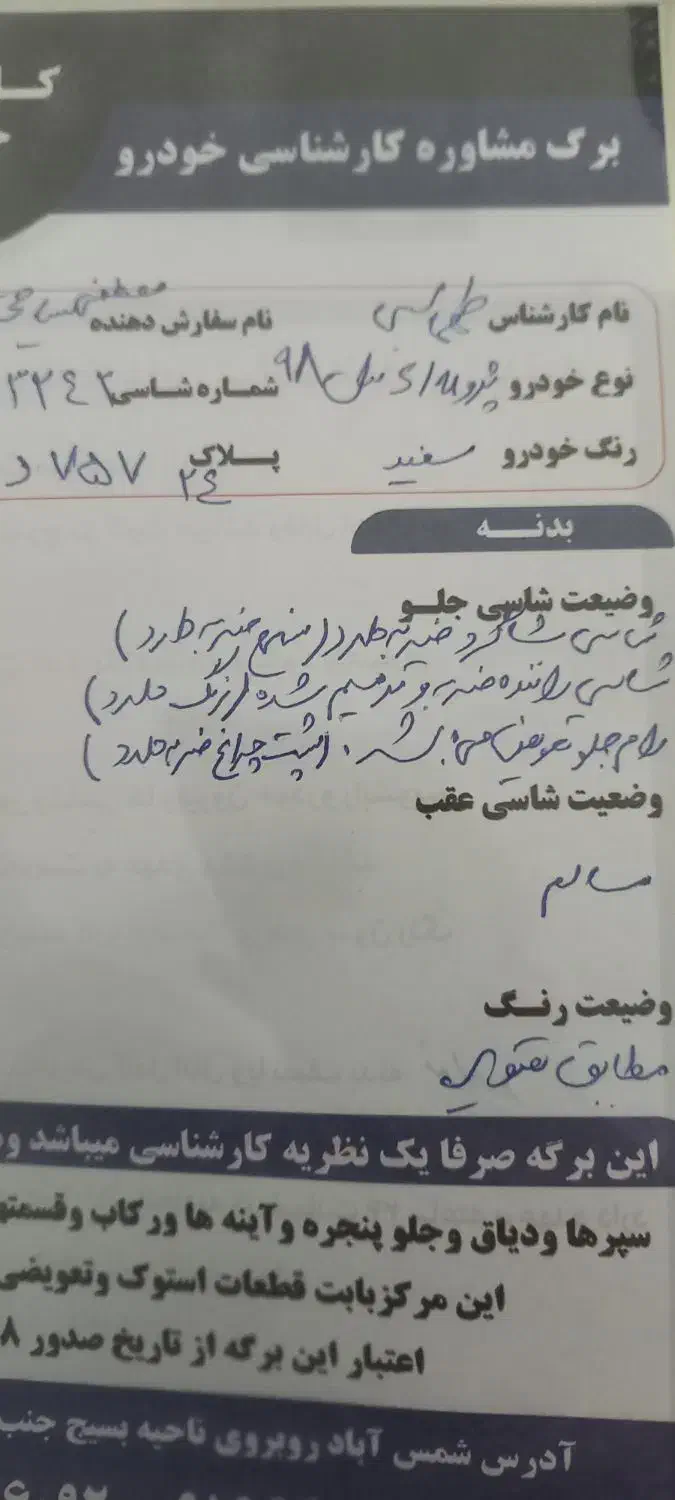 برگ مشاوره کارشناسی خودرو
نام کارشناس
نام سفارش دهنده مصطفی
نوع خودرو پژو ۹۸
شماره شاسی ۳۲۴۲
رنگ خودرو سفید
پلاک ۷۵۷ د ۲۴
بدنه
وضیعت شاسی جلو
شاسی شاگرد ضربه دارد (سینی ضربه دارد)
شاسی راننده ضربه و ترمیم شده (رنگ دارد)
رام جلو تعویض می باشد. (پشت چراغ ضربه دارد)
وضعیت شاسی عقب
سالم
وضیعت رنگ
مطابق
این برگه صرفا یک نظریه کارشناسی میباشد
سپرها ودیاق وجلو پنجره وآینه ها ورکاب وقسمتها
این مرکزبابت قطعات استوک وتعویضی
اعتبار این برگه از تاریخ صدور ۸
آدرس شمس آباد روبروی ناحیه بسیج جنب